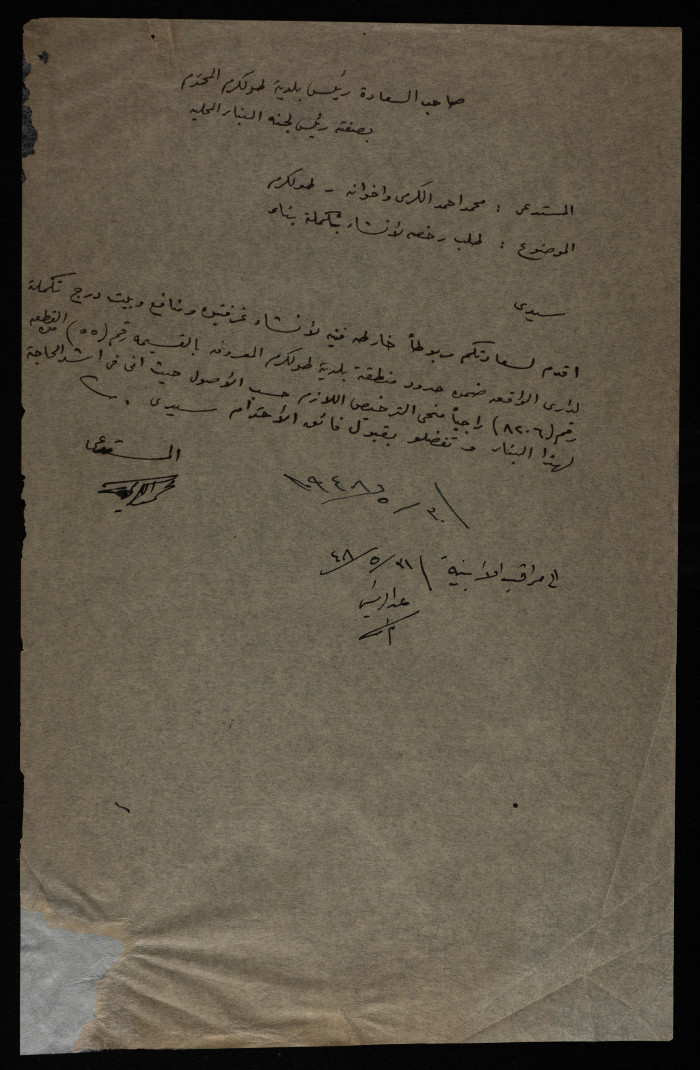 صاحب السعادة رئيس بلدية طولكرم المحترم
بصفته رئيس لجنة البناء المحلية
المستدعي : محمد احمد الكرمي واخوانه - طولكرم
الموضوع : طلب رخصه لانشاء تكملة بناء
سيدي
اقدم لسعادتكم مربوطاً خارطه فنيه لانشاء غرفتين ومنافع وبيت درج تكملة
لداري الواقعه ضمن حدود منطقة بلدية طولكرم المعروفه بالقسيمه رقم (٥٥) من القطعه
رقم (٨٢٠٦) راجياً منحي الترخيص اللازم حسب الأصول حيث اني في اشد الحاجة
لهذا البناء وتفضلو بقبول فائق الأحترام سيدي
المستدعي
٣٠/٥/١٩٤٨
الى مراقب الابنية ٣١/٥/٤٨
عن الرئيس